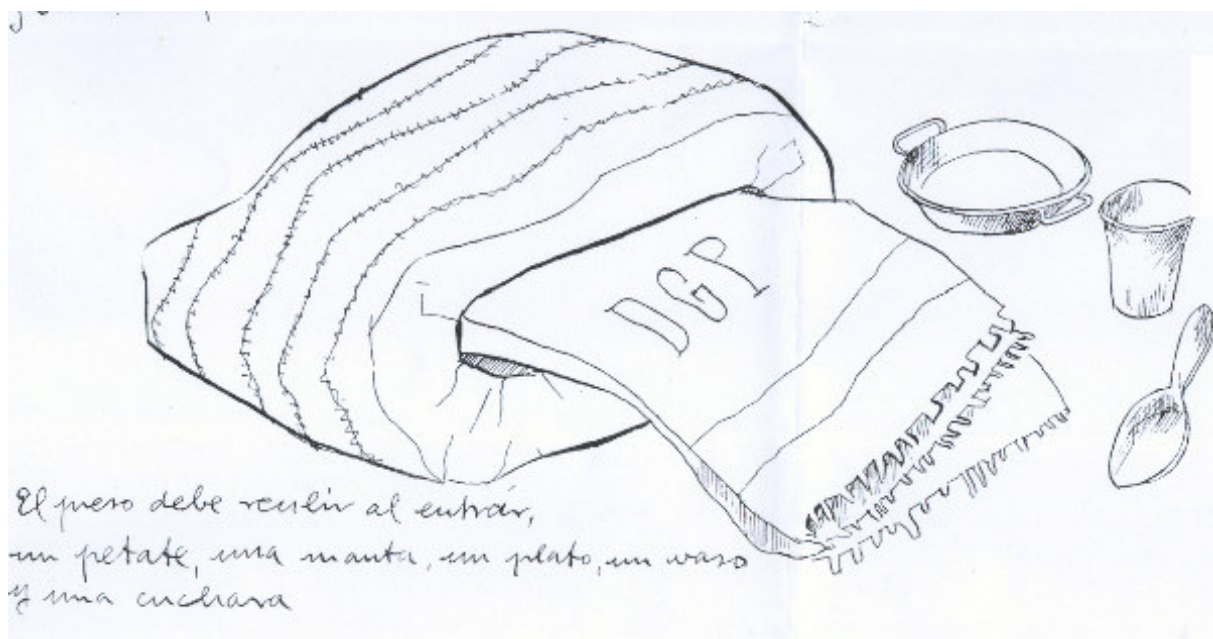 DGP
El preso debe recibir al entrar,
un petate, una manta, un plato, un vaso
y una cuchara